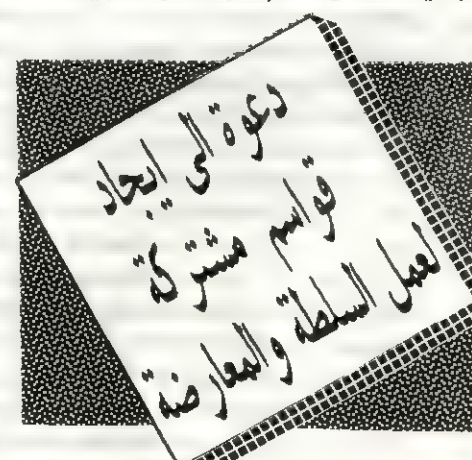 دعوة الى ايجاد
قواسم مشتركة
لعمل السلطة والمعارضة